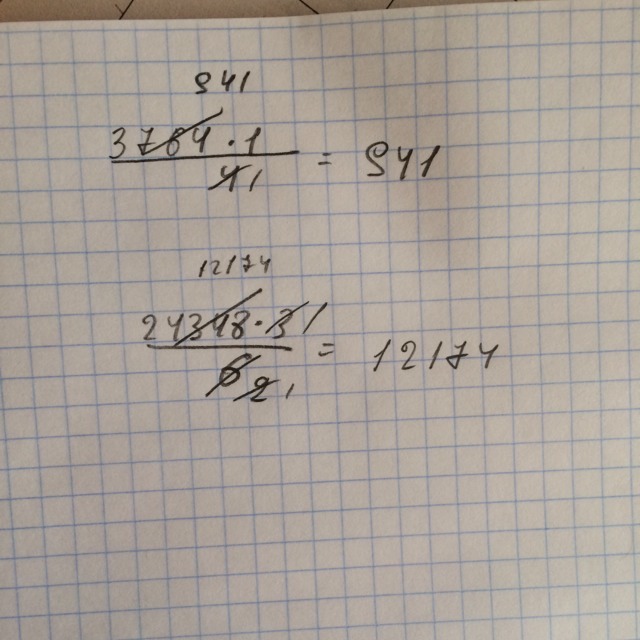 941
3764 · 1 / 4 1 = 941
12174
24348 · 3 1 / 6 2 1 = 12174